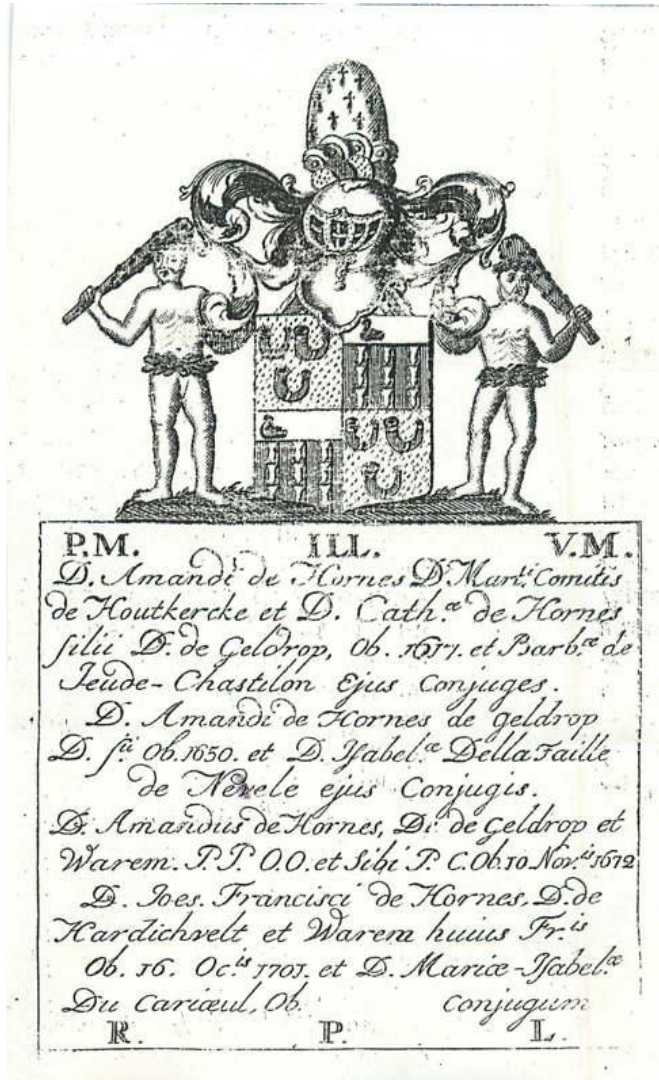 P.M. ILL. V.M.
D. Amandi de Hornes D. Mart.i Comitis
de Houtkercke et D. Cath.æ de Hornes
filii D. de Geldrop, Ob. 1617. et Barb.æ de
Jeude-Chastilon Ejus Conjuges.
D. Amandi de Hornes de Geldrop
D. f.ii Ob. 1650. et D. Isabel.æ Della Faille
de Nevele ejus Conjugis.
D. Amandus de Hornes, D.i de Geldrop et
Warem. P.P. O.O. et Sibi P. C. Ob. 10 Nov.is 1672
D. Joes. Francisci de Hornes, D. de
Hardichvelt et Warem huius Fr.is
Ob. 16. Oc.is 1701. et D. Mariæ-Isabel.æ
Du Cariœul, Ob. Conjugum
R. P. L.